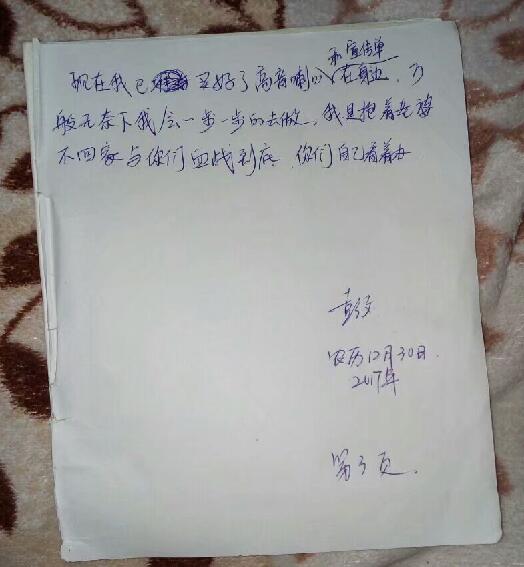 和宣传单
现在我已买好了高音喇叭在身边，万
般无奈下我会一步一步的去做，我是抱着老婆
不回家与你们血战到底，你们自己看着办
农历12月30日.
2017年
第3页.